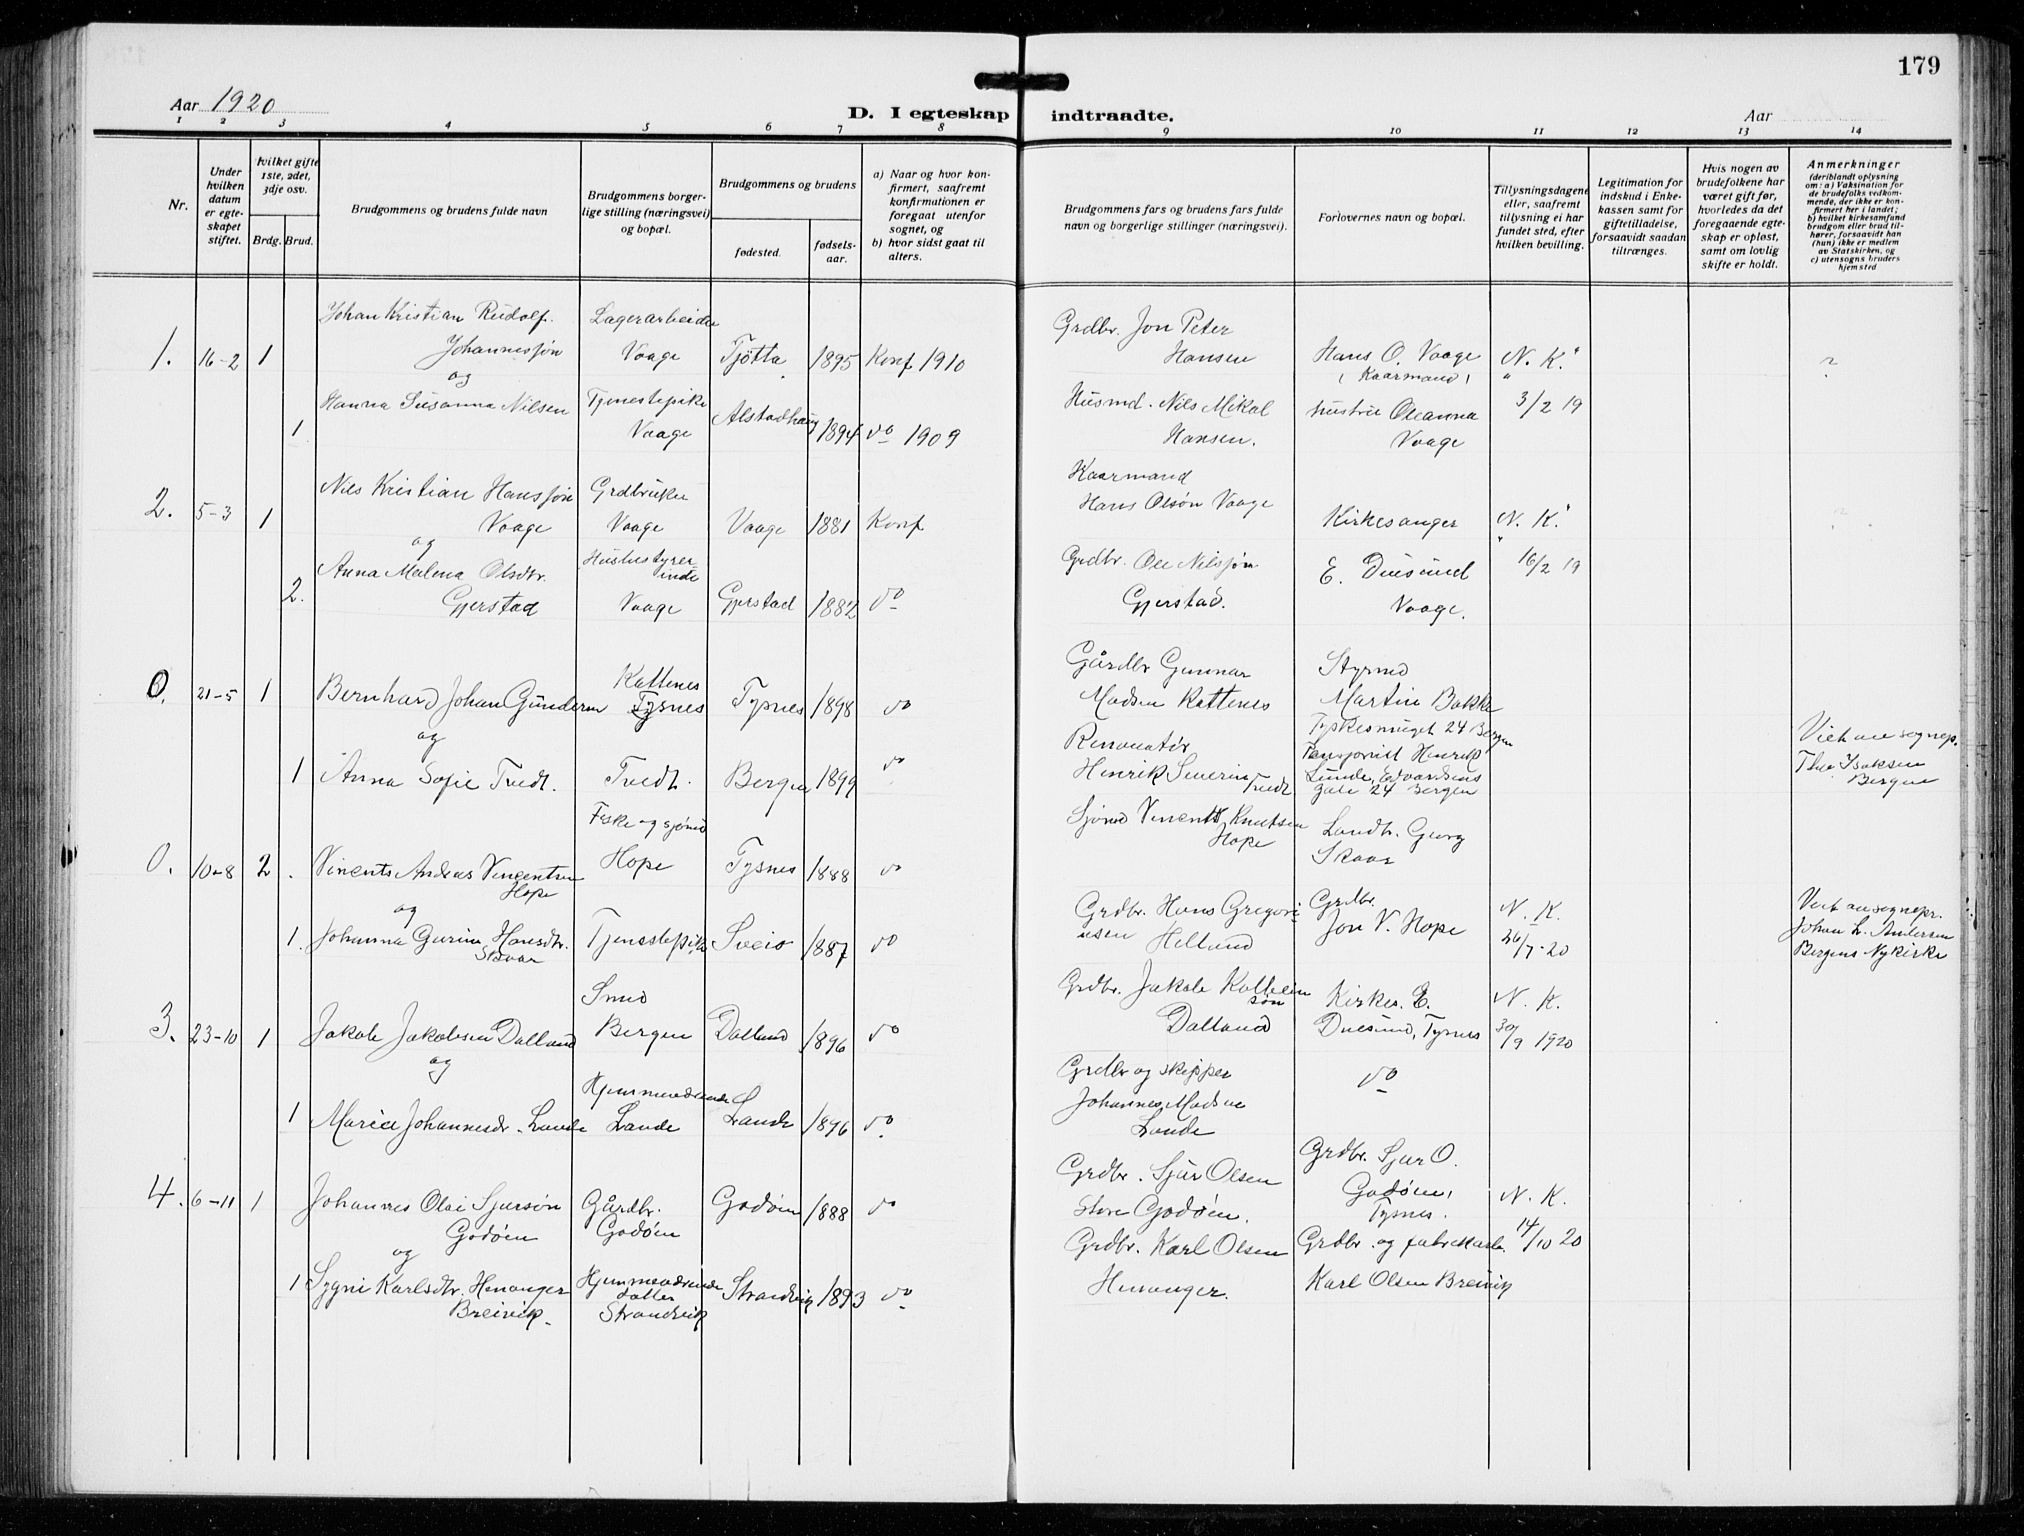 179
Aar 1920
D. I egteskap indtraadte.
Aar
1 2 3 4 5 6 7 8 9 10 11 12 13 14
Nr.
Under hvilken datum er egteskapet stiftet.
Hvilket gifte 1ste, 2det, 3dje osv.
Brdg. Brud.
Brudgommens og brudens fulde navn
Brudgommens borgerlige stilling (næringsvei) og bopæl.
Brudgommens og brudens
fødested.
fødselsaar.
a) Naar og hvor konfirmert, saafremt konfirmationen er foregaat utenfor sognet, og
b) hvor sidst gaat til alters.
Brudgommens fars og brudens fars fulde navn og borgerlige stillinger (næringsvei).
Forlovernes navn og bopæl.
Tillysningsdagene eller, saafremt tillysning ei har fundet sted, efter hvilken bevilling.
Legitimation for indskud i Enkekassen samt for giftetilladelse, forsaavidt saadan tiltrænges.
Hvis nogen av brudefolkene har været gift før, hvorledes da det foregaaende egteskap er opløst, samt om lovlig skifte er holdt.
Anmerkninger
(deriblandt oplysning om: a) Vaksination for de brudefolks vedkommende, der ikke er konfirmert her i landet;
b) hvilket kirkesamfund brudgom eller brud tilhører, forsaavidt han (hun) ikke er medlem av Statskirken, og
c) utensogns bruders hjemsted
1. 16-2 1 Johan Kristian Rudolf Johannessøn
Lagerarbeider Vaage
Tjøtta 1895 Konf 1910
Grdbr. Jon Peter Hansen
Hans O. Vaage (Kaarmand)
N. K. ?
og
1 Hanna Susanna Nilsen
Tjenestepike Vaage
Alstadhaug 1894 do 1909
Husmd. Nils Mikal Hansen.
hustru Oleanna Vaage
3/2 19
2. 5-3 1 Nils Kristian Hanssøn Vaage
Grdbruker Vaage
Vaage 1881 Konf
Kaarmand Hans Olsøn Vaage
Kirkesanger
N. K.
og
2. Anna Malena Olsdtr. Gjerstad
Husbestyrerinde Vaage
Gjerstad 1882 do
Grdbr. Ole Nilssøn Gjerstad.
E. Duesund Vaage.
16/2 19
0. 21-5 1 Bernhard Johan Gundersen
Kattenes Tysnes
Tysnes 1898 do
Gårdbr Gunnar Madsen Kattenes
Styrmd Martin Bakke
Tyskesmuget 24 Bergen
og
1 Anna Sofie Tvedt.
Tvedt.
Bergen 1899 do
Renovatør Henrik Severin Tvedt
Henrik Lunde, Edvardsens gate 24 Bergen
Viet av sognep. Isaksen Bergen
0. 10-8 2 Vincents Andreas Vincentsen Hope
Fiske og sjømd Hope
Tysnes 1888 do
Sjømd Vincents Knutsen Hope
Landh. Georg Skaar
og
1. Johanna Gurina Hansdtr. Skaar
Tjenestepike
Sveio 1887 do
Grdbr. Hans Gregoriusen Helland
Grdbr. Jon V. Hope
N. K. 26/7-20
Viet av sognepr. Johan L. Andersen Bergens Nykirke
3. 23-10 1 Jakob Jakobsen Dalland
Smed Bergen
Dalland 1896 do
Grdbr. Jakob Kolbeinsøn Dalland
Kirkes. E. Duesund, Tysnes
N. K. 30/9 1920
og
1 Maria Johannesdr. Lande
Hjemmeværende Lande
Lande 1896 do
Grdbr og skipper Johannes Madsen Lande
do
4. 6-11 1 Johannes Olai Sjursøn Godøen
Gårdbr. Godøen
Godøen 1888 do
Grdbr. Sjur Olsen Store Godøen.
Grdbr. Sjur O. Godøen, Tysnes.
N. K. 14/10 20
og
1 Sygni Karlsdtr. Henanger Breivik
Hjemmeværende datter Strandvik
Strandvik 1893 do
Grdbr. Karl Olsen Henanger.
Grdbr. og
Karl Olsen Breivik